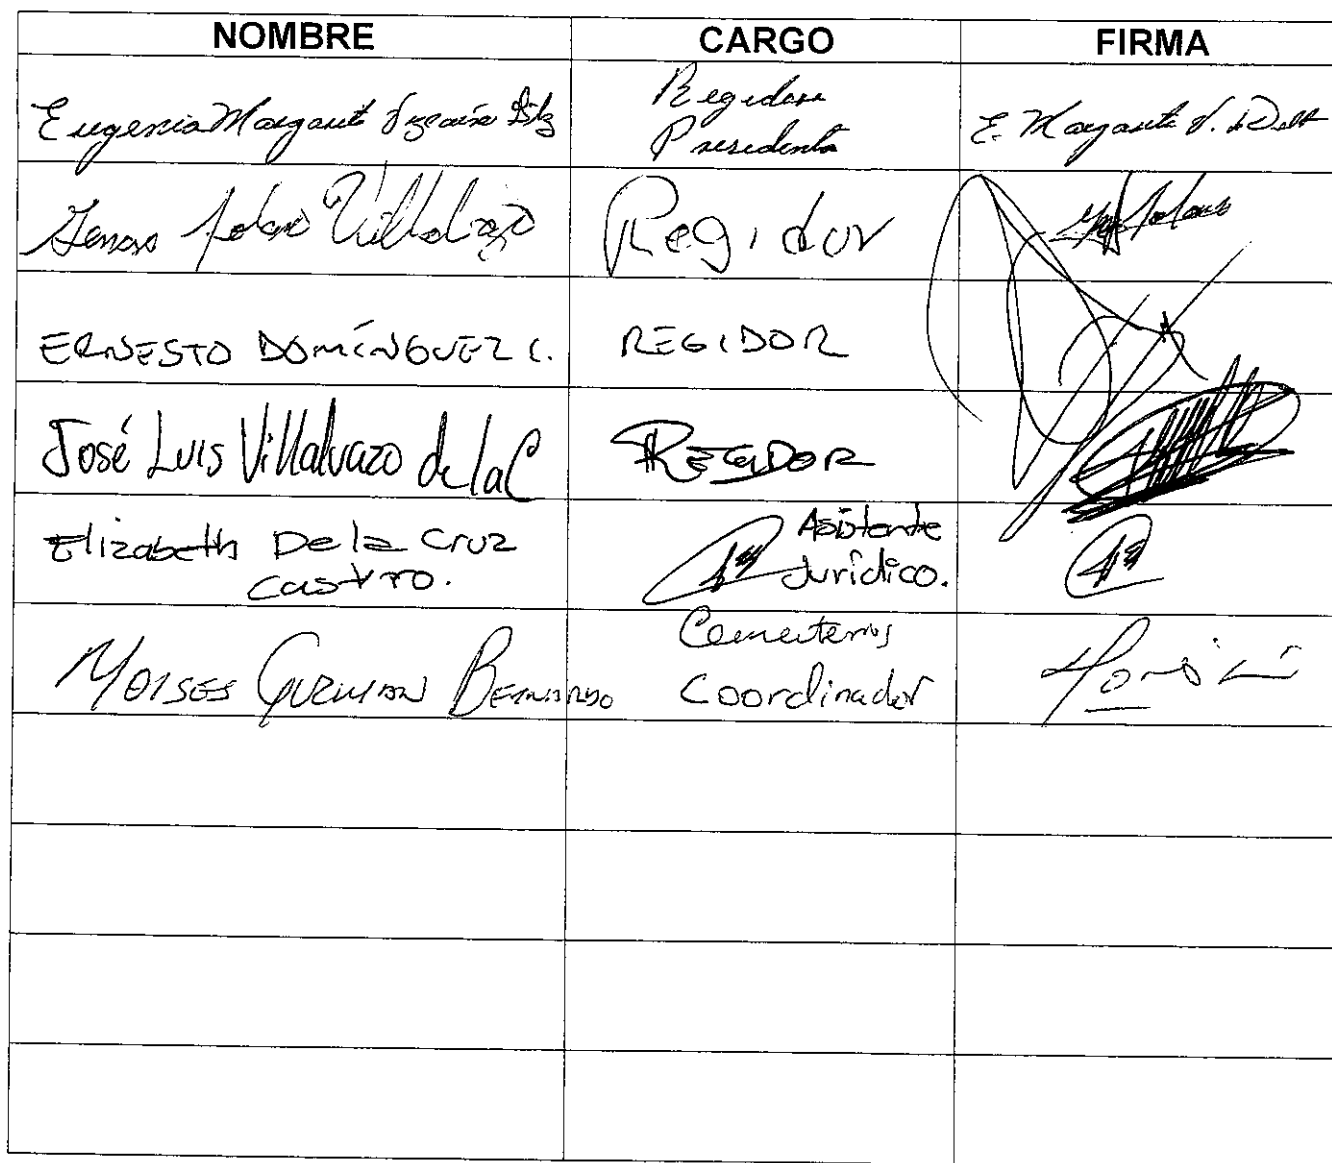 NOMBRE CARGO FIRMA
Eugenia Margarita Vizcaíno Regidora
Presidenta E. Margarita V.
Genaro Solano Villalvazo Regidor
ERNESTO DOMÍNGUEZ C. REGIDOR
José Luis Villalvazo de la C REGIDOR
Elizabeth De la Cruz Asistente
Castro. Jurídico.
Cementerios
MOISES GUZMAN BERNARDO Coordinador